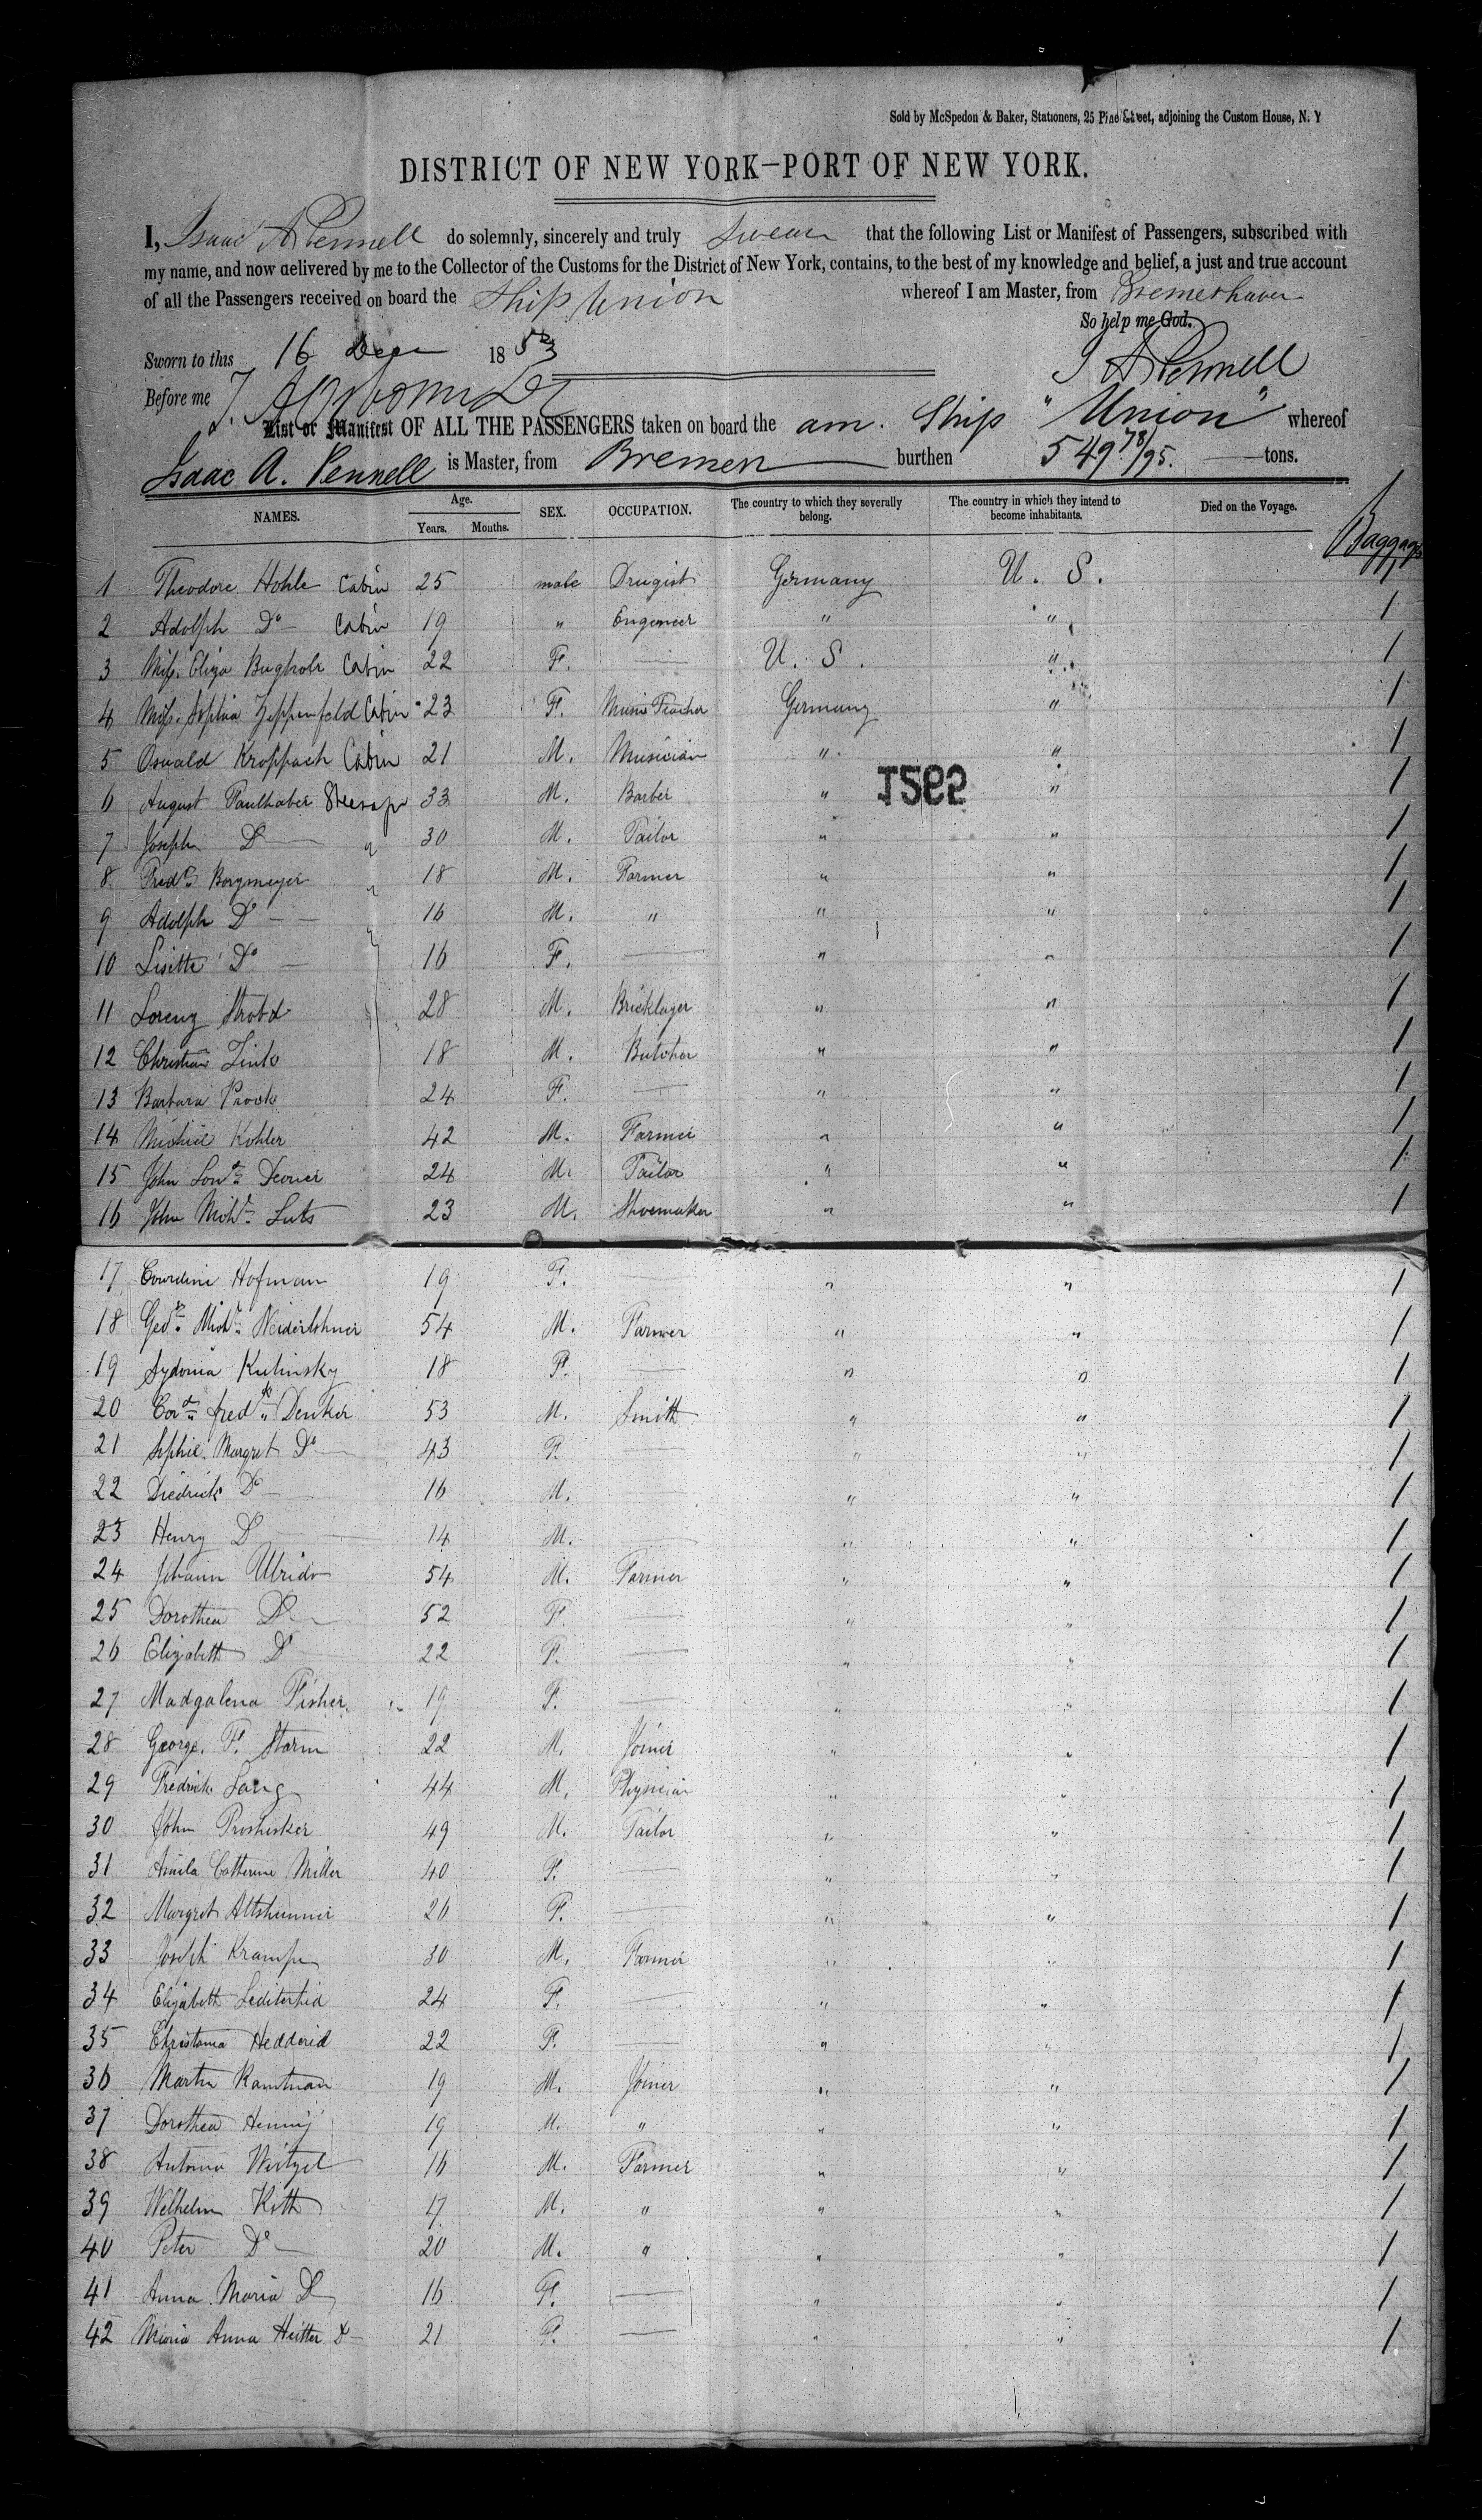 Sold by McSpedon & Baker, Stationers, 25 Pine Street, adjoining the Custom House, N. Y
DISTRICT OF NEW YORK—PORT OF NEW YORK.
I, Isaac A Pennell do solemnly, sincerely and truly swear that the following List or Manifest of Passengers, subscribed with
my name, and now delivered by me to the Collector of the Customs for the District of New York, contains, to the best of my knowledge and belief, a just and true account
of all the Passengers received on board the Ship Union whereof I am Master, from Bremerhaven
So help me God.
Sworn to this 16 Decr 1853 I A Pennell
Before me
List or Manifest OF ALL THE PASSENGERS taken on board the am. Ship "Union" whereof
Isaac A. Pennell is Master, from Bremen burthen 549 78/95. tons.
NAMES. Age. Years. Months. SEX. OCCUPATION. The country to which they severally belong. The country in which they intend to become inhabitants. Died on the Voyage. Baggage
1 Theodore Hohle Cabin 25 male Drugist Germany U. S. 1
2 Adolph Do Cabin 19 " Engeneer " " 1
3 Miss. Eliza Cabin 22 F. U. S. " 1
4 Miss. Sophia Zeppenfeld Cabin 23 F. Music Teacher Germany " 1
5 Oswald Kroppach Cabin 21 M. Musician " " 1
T2562
6 August Paulhaber Steerage 33 M. Barber " " 1
7 Joseph Do " 30 M. Tailor " " 1
8 Fredk Borgmeyer " 18 M. Farmer " " 1
9 Adolph Do " 16 M. " " " 1
10 Lisette Do 16 F. " " 1
11 Lorenz 28 M. Bricklayer " " 1
12 Christian Link 18 M. Butcher " " 1
13 Barbara 24 F. " " 1
14 Michiel Kohler 42 M. Farmer " " 1
15 John 24 M. Tailor " " 1
16 John Michl Luts 23 M. Shoemaker " " 1
17 Hofman 19 F. " " 1
18 Geo. Michl 54 M. Farmer " " 1
19 Sydonia Kulinsky 18 F. " " 1
20 fredk Denker 53 M. Smith " " 1
21 Sophie Margret Do 43 F. " " 1
22 Diedrick Do 16 M. " " 1
23 Henry Do 14 M. " " 1
24 Johann Ulrich 54 M. Farmer " " 1
25 Dorothea Do 52 F. " " 1
26 Elizabeth Do 22 F. " " 1
27 Madgalena Fisher 19 F. " " 1
28 George. F. Storm 22 M. Joiner " " 1
29 Fredrick Lang 44 M. Physician " " 1
30 John 49 M. Tailor " " 1
31 Catherine Miller 40 F. " " 1
32 Margret 26 F. " " 1
33 Joseph Kramp 30 M. Farmer " " 1
34 Elizabeth 24 F. " " 1
35 Hedderid 22 F. " " 1
36 Martin 19 M. Joiner " " 1
37 Dorothea Henning 19 M. " " " 1
38 16 M. Farmer " " 1
39 Welhelm Koth 17 M. " " " 1
40 Peter Do 20 M. " " " 1
41 Anna Maria Do 16 F. " " 1
42 Maria Anna Do 21 F. " " 1